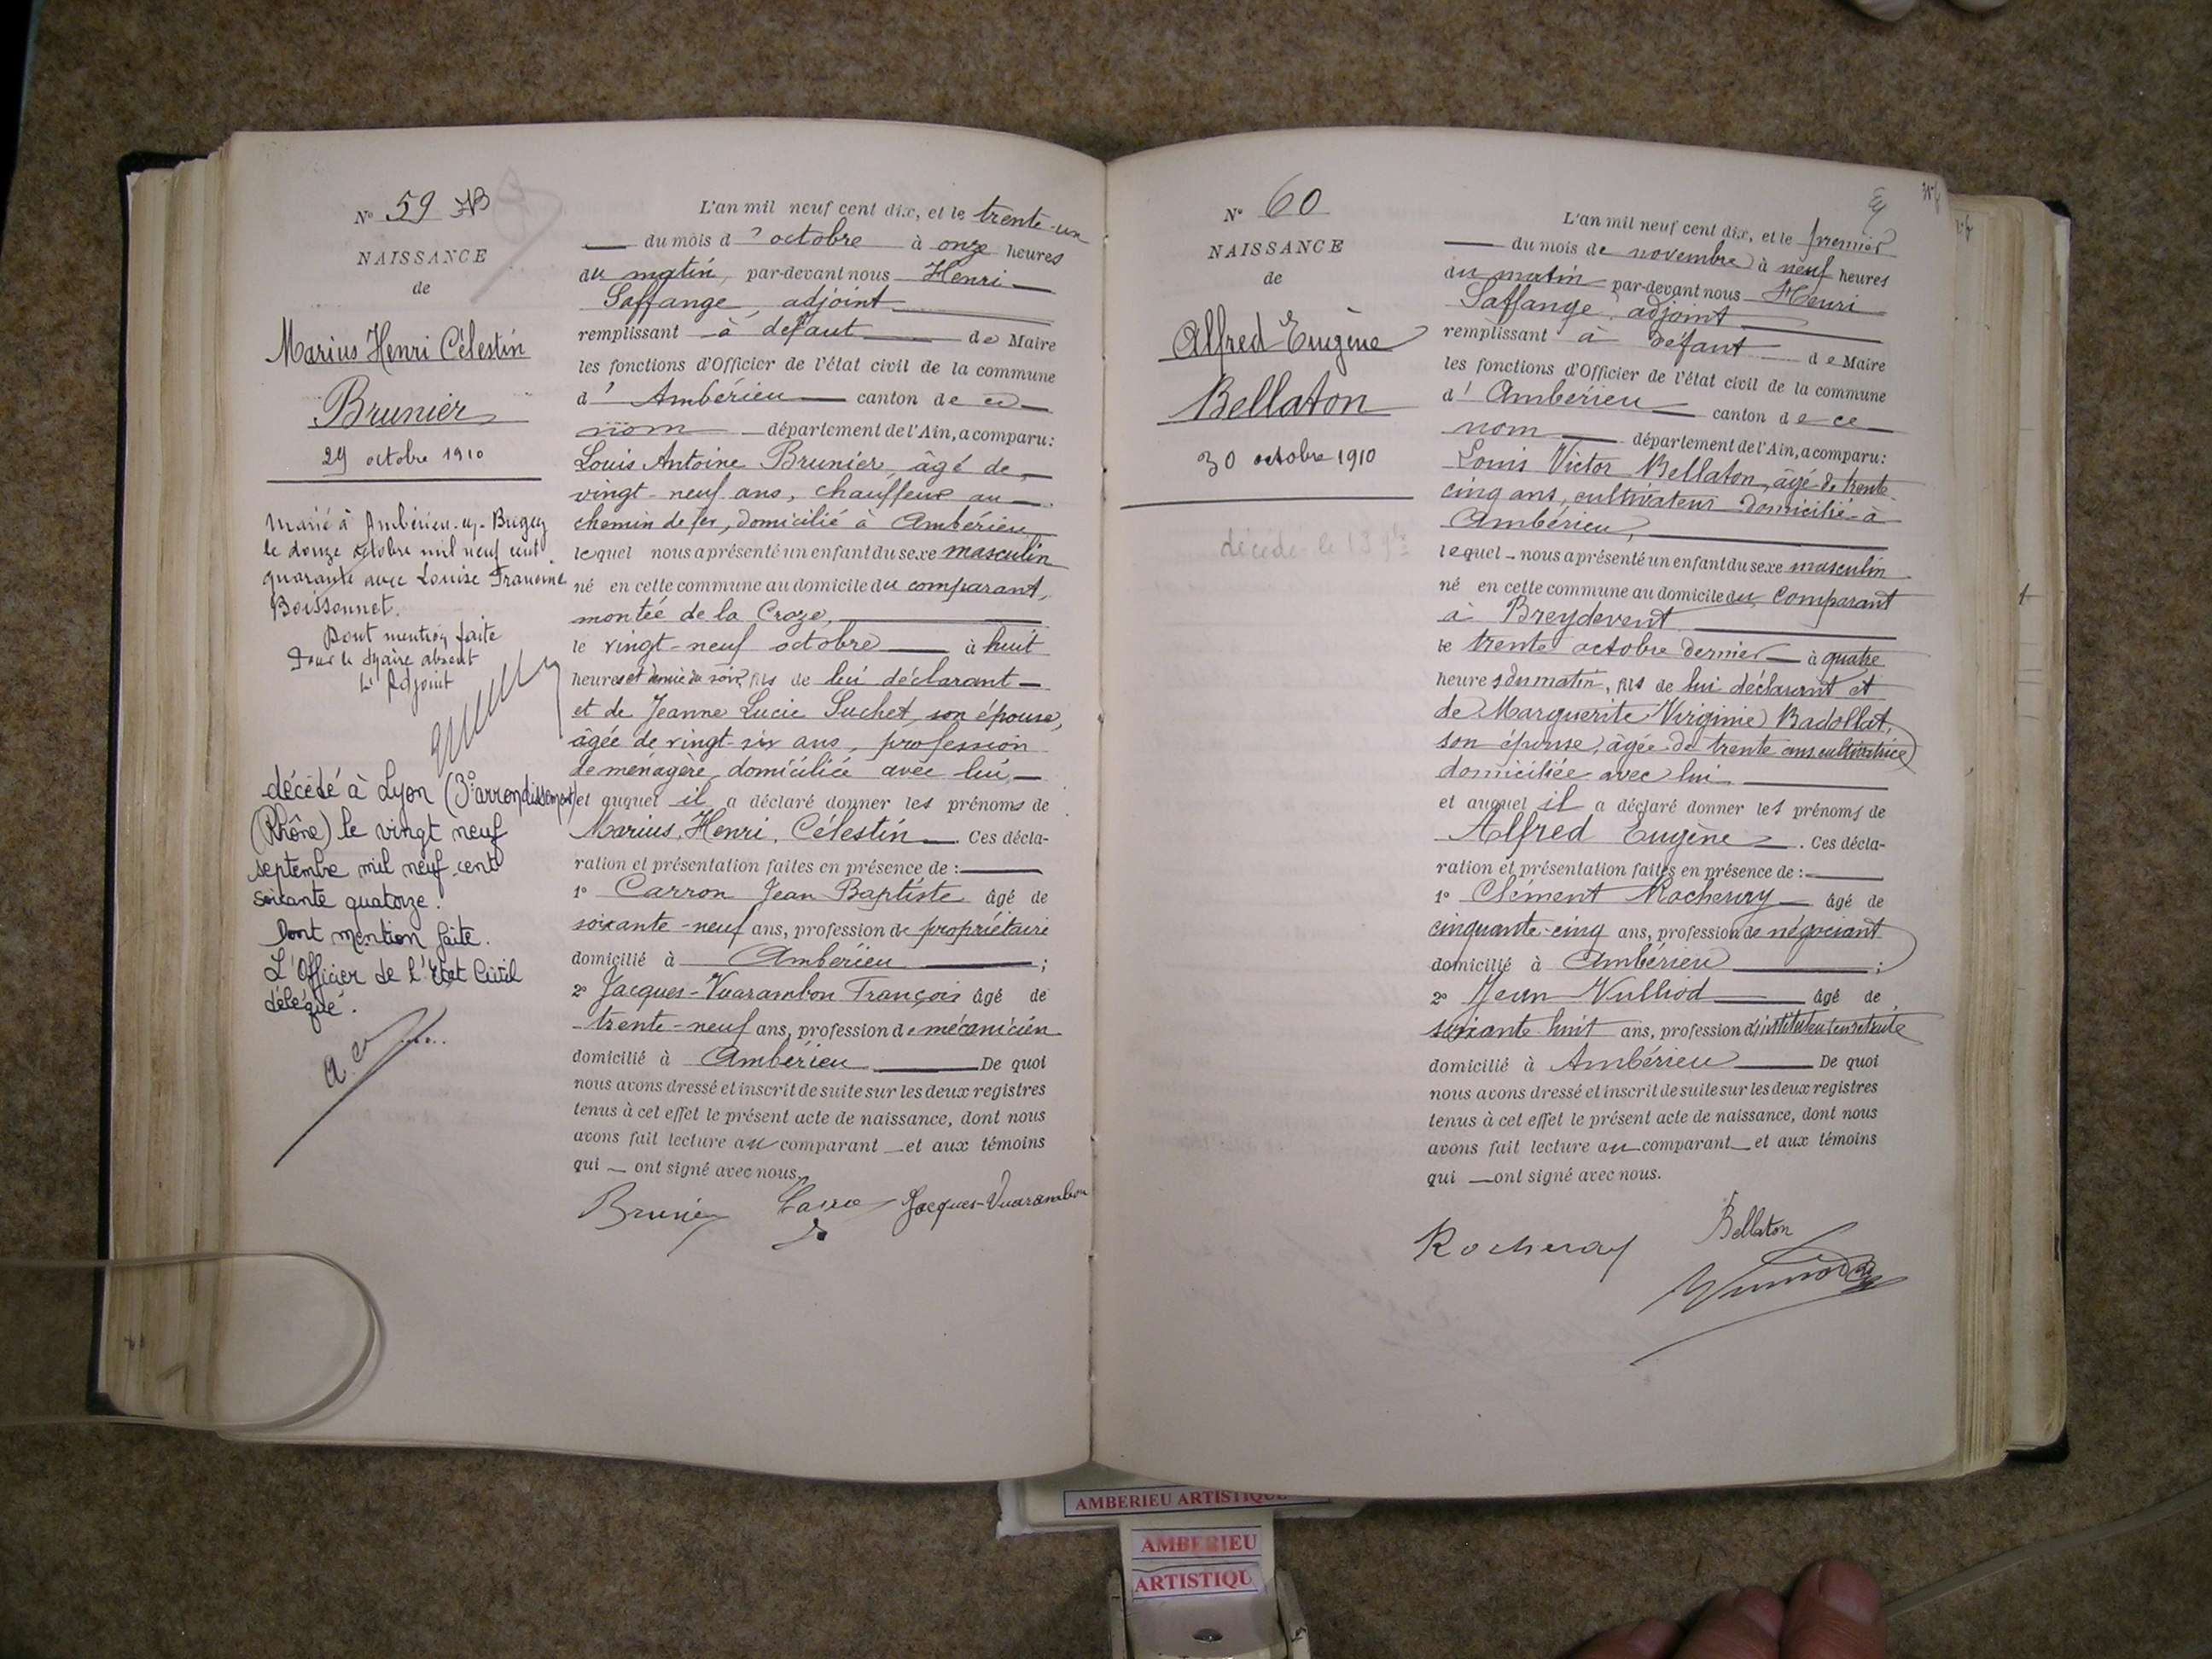 N° 59
NAISSANCE
de
Marius Henri Célestin
Brunier
29 octobre 1910
Marié à Ambérieu-en-Bugey
le douze octobre mil neuf cent
quarante avec Louise Francine
Boissonnet.
Dont mention faite
Pour le Maire absent
L'Adjoint
décédé à Lyon (3° arrondissement)
(Rhône) le vingt neuf
septembre mil neuf cent
soixante quatorze.
Dont mention faite.
L'Officier de l'Etat Civil
délégué.
L'an mil neuf cent dix, et le trente-un
du mois d'octobre à onze heures
du matin, par-devant nous Henri
Saffange, adjoint
remplissant à défaut de Maire
les fonctions d'Officier de l'état civil de la commune
d'Ambérieu canton de ce
nom département de l'Ain, a comparu:
Louis Antoine Brunier, âgé de
vingt-neuf ans, chauffeur au
chemin de fer, domicilié à Ambérieu,
lequel nous a présenté un enfant du sexe masculin
né en cette commune au domicile du comparant,
montée de la Croze,
le vingt-neuf octobre à huit
heures et demie du soir, fils de lui déclarant
et de Jeanne Lucie Suchet, son épouse,
âgée de vingt-six ans, profession
de ménagère, domiciliée avec lui,
et auquel il a déclaré donner les prénoms de
Marius, Henri, Célestin. Ces décla-
ration et présentation faites en présence de :
1° Carron Jean Baptiste âgé de
soixante-neuf ans, profession de propriétaire
domicilié à Ambérieu ;
2° Jacques-Vuarambon François âgé de
trente-neuf ans, profession de mécanicien
domicilié à Ambérieu De quoi
nous avons dressé et inscrit de suite sur les deux registres
tenus à cet effet le présent acte de naissance, dont nous
avons fait lecture au comparant et aux témoins
qui ont signé avec nous.
Brunier Jacques-Vuarambon
N° 60
NAISSANCE
de
Alfred Eugène
Bellaton
30 octobre 1910
décédé le 13 9bre
L'an mil neuf cent dix, et le premier
du mois de novembre à neuf heures
du matin par-devant nous Henri
Saffange, adjoint
remplissant à défaut de Maire
les fonctions d'Officier de l'état civil de la commune
d'Ambérieu canton de ce
nom département de l'Ain, a comparu:
Louis Victor Bellaton, âgé de trente
cinq ans, cultivateur domicilié à
Ambérieu,
lequel nous a présenté un enfant du sexe masculin
né en cette commune au domicile du comparant
à Breydevent
le trente octobre dernier à quatre
heures du matin, fils de lui déclarant et
de Marguerite Virginie Badollat,
son épouse, âgée de trente ans cultivatrice
domiciliée avec lui
et auquel il a déclaré donner les prénoms de
Alfred Eugène. Ces décla-
ration et présentation faites en présence de :
1° Clément Rocheray âgé de
cinquante-cinq ans, profession de négociant
domicilié à Ambérieu ;
2° Jean Vulliod âgé de
soixante huit ans, profession d'instituteur en retraite
domicilié à Ambérieu De quoi
nous avons dressé et inscrit de suite sur les deux registres
tenus à cet effet le présent acte de naissance, dont nous
avons fait lecture au comparant et aux témoins
qui ont signé avec nous.
Bellaton
Rocheray
AMBERIEU ARTISTIQUE
AMBERIEU
ARTISTIQU